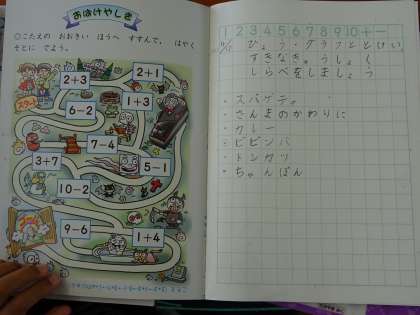 おばけやしき
◎こたえの おおきい ほうへ すすんで、 はやく
そとに でよう。
スタート
2+3
2+1
6-2
1+3
7-4
3+7
5-1
10-2
9-6
1+4
1 2 3 4 5 6 7 8 9 10 + -
ひょう・グラフととけい
すきなきゅうしょく
しらべをしましょう
・スパゲティ
・さんまのかわりに
・カレー
・ビビンバ
・トンカツ
・ちゃんぽん